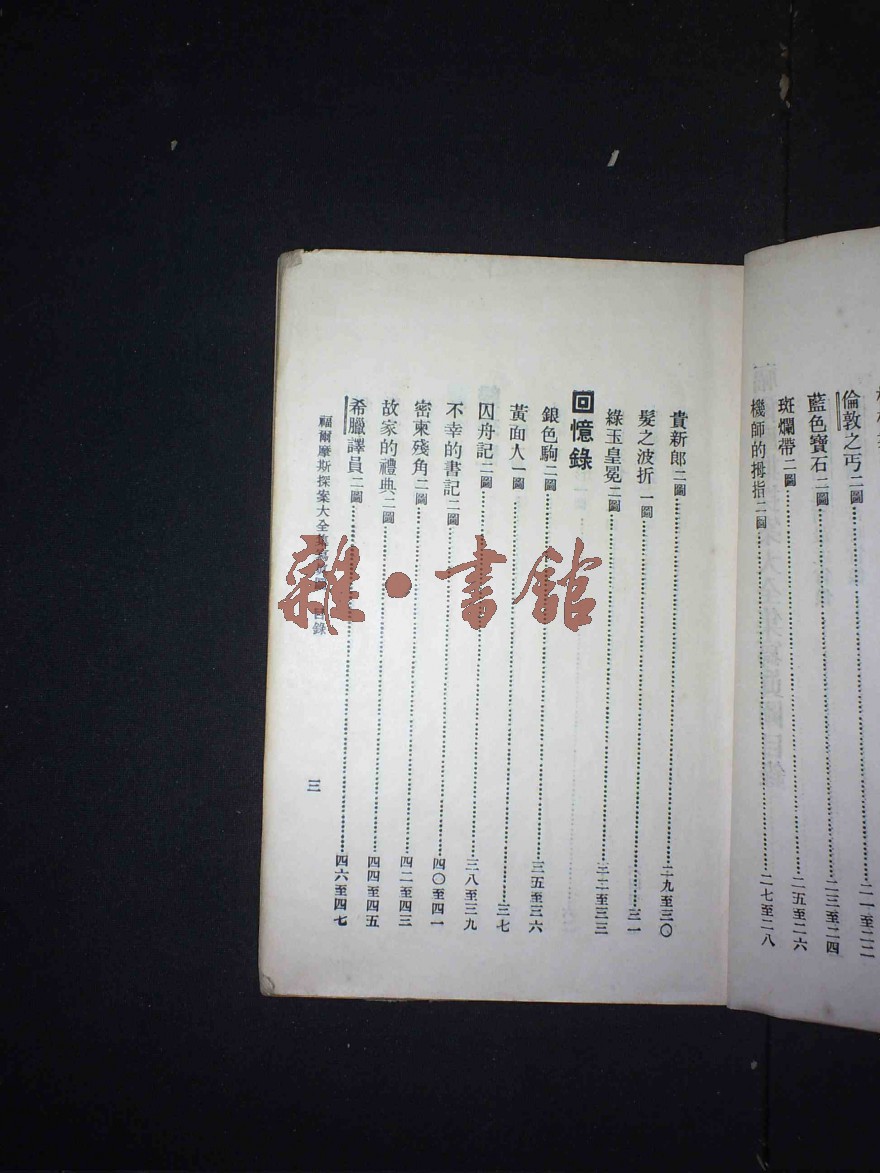 倫敦之丐二圖……二一至二二
藍色寶石二圖……二三至二四
斑爛帶二圖……二五至二六
機師的拇指二圖……二七至二八
貴新郎二圖……二九至三〇
髮之波折一圖……三一
綠玉皇冕二圖……三二至三三
回憶錄
銀色駒二圖……三五至三六
黃面人一圖……三七
囚舟記二圖……三八至三九
不幸的書記二圖……四〇至四一
密柬殘角二圖……四二至四三
故家的禮典二圖……四四至四五
希臘譯員二圖……四六至四七
福爾摩斯探案大全集 目錄
三
雜·書館